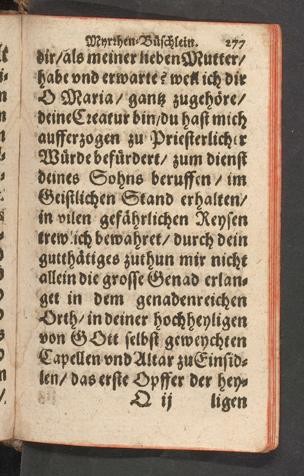 Myrthen-Büschlein. 277
dir/als meiner lieben Mutter/
habe vnd erwarte? weil ich dir
O Maria/ gantz zugehöre/
deine Creatur bin/du hast mich
aufferzogen zu Priesterlicher
Würde befürdert/ zum dienst
deines Sohns beruffen/ im
Geistlichen Stand erhalten/
in vilen gefährlichen Reysen
trewlich bewahret/ durch dein
gutthätiges zuthun mir nicht
allein die grosse Genad erlan-
get in dem genadenreichen
Orth/ in deiner hochheyligen
von GOtt selbst geweychten
Capellen vnd Altar zu Einsid-
len/ das erste Opffer der hey-
Q ij ligen